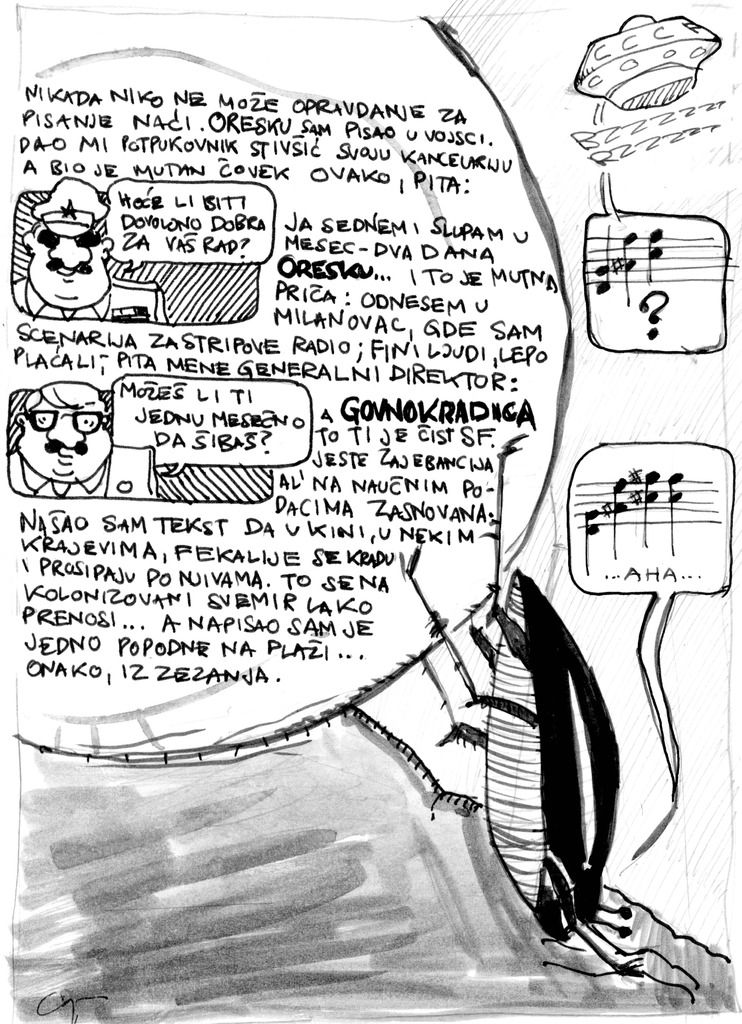 NIKADA NIKO NE MOŽE OPRAVDANJE ZA
PISANJE NAĆI. ORESKU SAM PISAO U VOJSCI.
DAO MI POTPUKOVNIK STIVŠIĆ SVOJU KANCELARIJU
A BIO JE MUTAN ČOVEK OVAKO, PITA:
HOĆE LI BITI
DOVOLJNO DOBRA
ZA VAŠ RAD?
JA SEDNEM I SLUPAM U
MESEC-DVA DANA
ORESKU... I TO JE MUTNA
PRIČA: ODNESEM U
MILANOVAC, GDE SAM
SCENARIJA ZA STRIPOVE RADIO; FINI LJUDI, LEPO
PLAĆALI; PITA MENE GENERALNI DIREKTOR:
MOŽEŠ LI TI
JEDNU MESEČNO
DA ŠIBAŠ?
A GOVNOKRADICA
TO TI JE ČIST SF.
JESTE ZAJEBANCIJA
AL' NA NAUČNIM PO-
DACIMA ZASNOVANA:
NAŠAO SAM TEKST DA U KINI, U NEKIM
KRAJEVIMA, FEKALIJE SE KRADU
I PROSIPAJU PO NJIVAMA. TO SE NA
KOLONIZOVANI SVEMIR LAKO
PRENOSI... A NAPISAO SAM JE
JEDNO POPODNE NA PLAŽI...
ONAKO, IZ ZEZANJA.
?
...AHA...